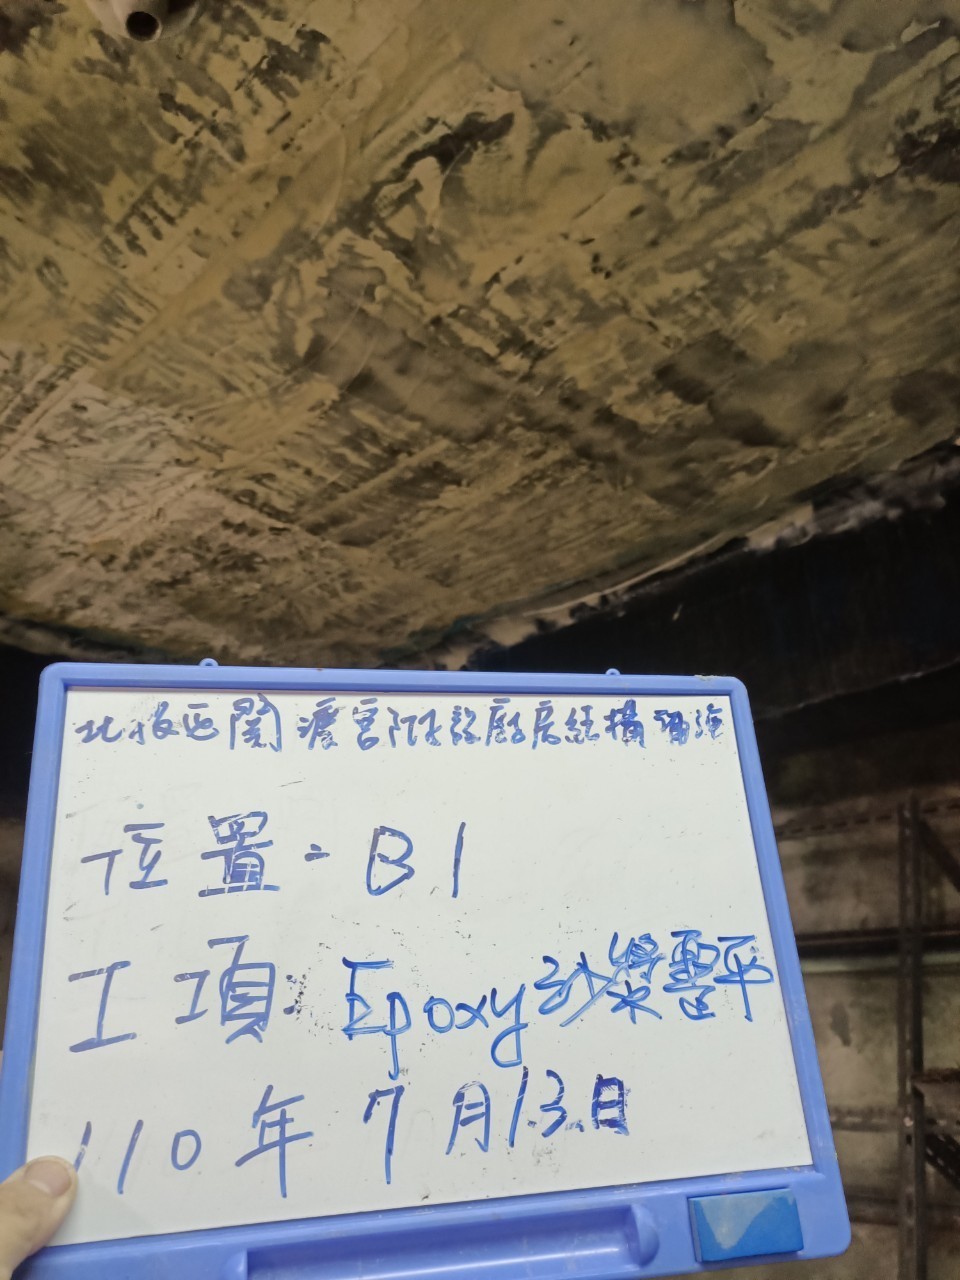 北投區關渡宮附設廚房結構補強
位置:B1
工項:Epoxy砂漿整平
110年7月13日